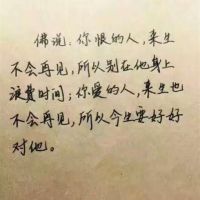 佛说：你恨的人，来生
不会再见，所以别在他身上
浪费时间；你爱的人，来生也
不会再见，所以今生要好好
对他。